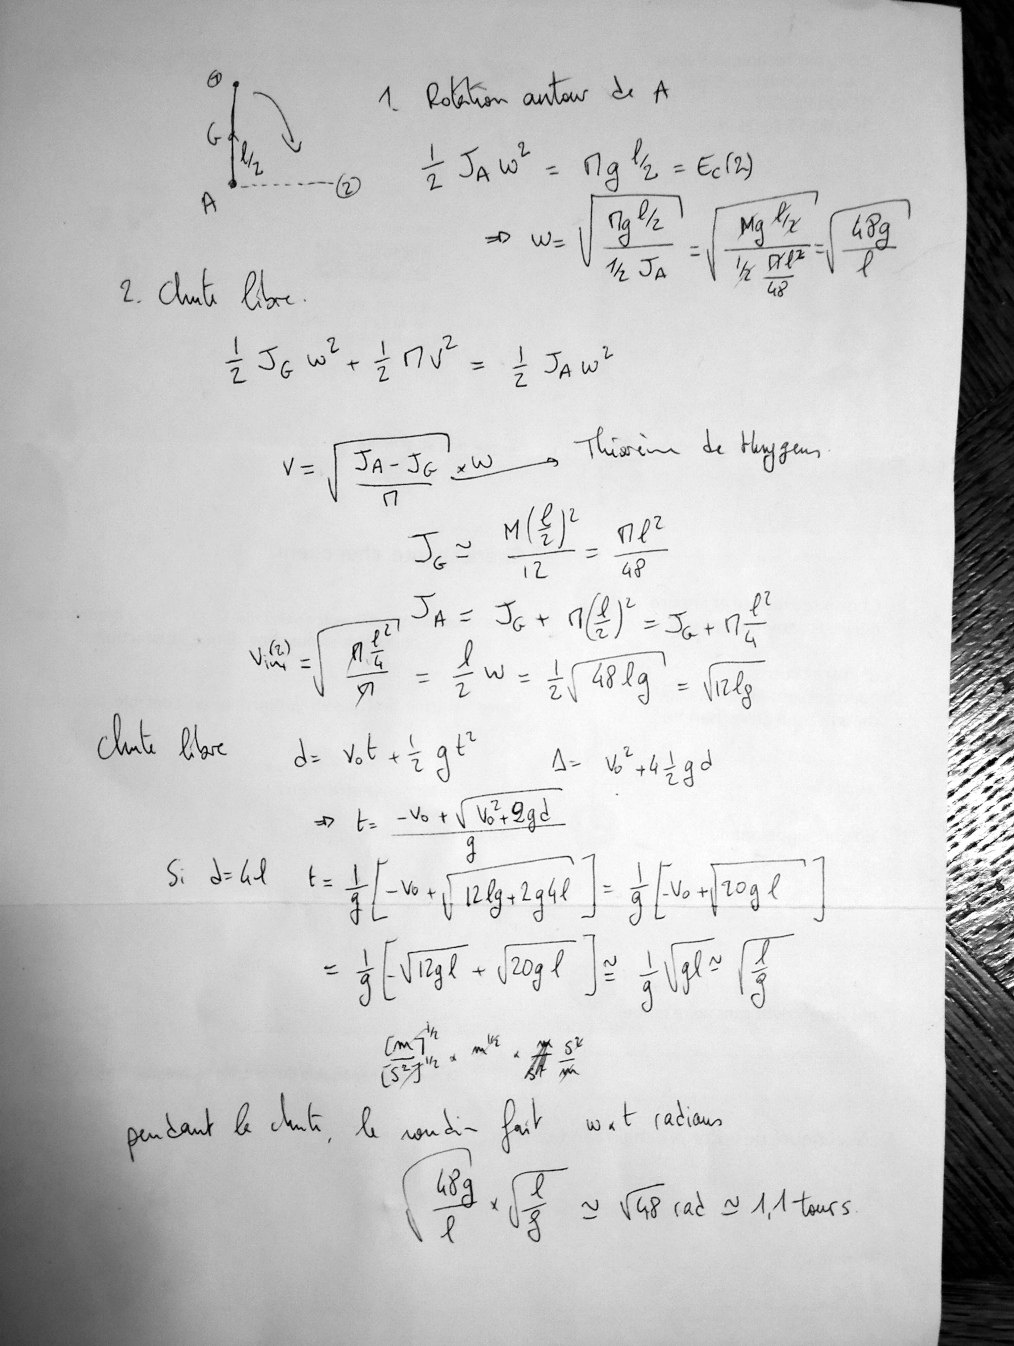 ①
G
l/2
A
②
1. Rotation autour de A
1/2 J_A ω² = Mg l/2 = Ec(2)
⇒ ω = √(Mg l/2 / (1/2 J_A)) = √(Mg l/2 / (1/2 Ml²/48)) = √(48g/l)
2. Chute libre.
1/2 J_G ω² + 1/2 Mv² = 1/2 J_A ω²
v = √((J_A - J_G)/M) × ω → Théorème de Huygens
J_G ≃ M(l/2)²/12 = Ml²/48
J_A = J_G + M(l/2)² = J_G + M l²/4
= √(M l²/4 / M) = l/2 ω = 1/2 √(48lg) = √(12lg)
Chute libre d = v₀t + 1/2 gt² Δ = v₀² + 4 1/2 gd
⇒ t = (-v₀ + √(v₀² + 2gd)) / g
Si d=4l t = 1/g [-v₀ + √(12lg + 2g4l)] = 1/g [-v₀ + √(20gl)]
= 1/g [-√(12gl) + √(20gl)] ≃ 1/g √(gl) ≃ √(l/g)
[m]^1/2 / [s²]^1/2 × m^1/2 × s²/m
pendant la chute, le rondin fait ω×t radians
√(48g/l) × √(l/g) ≃ √48 rad ≃ 1,1 tours.